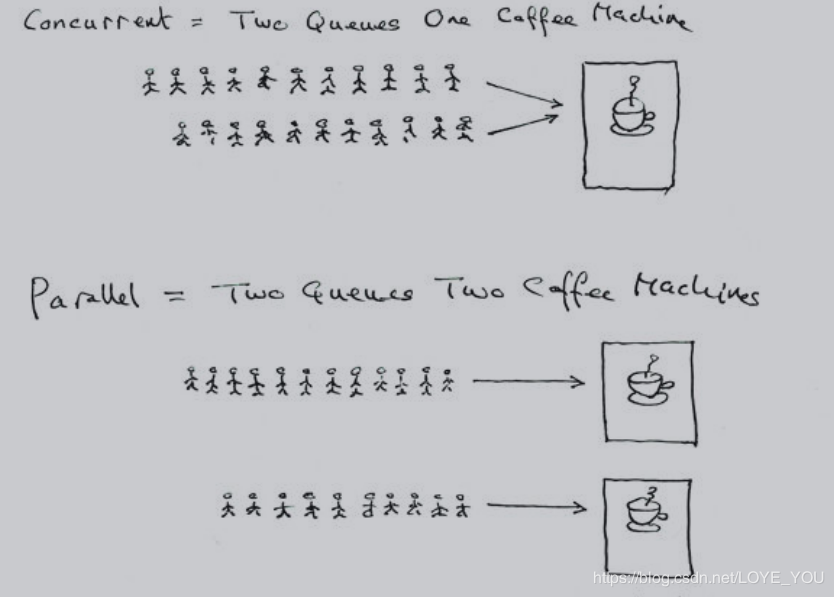 Concurrent = Two Queues One Coffee Machine
Parallel = Two Queues Two Coffee Machines
https://blog.csdn.net/LOYE_YOU